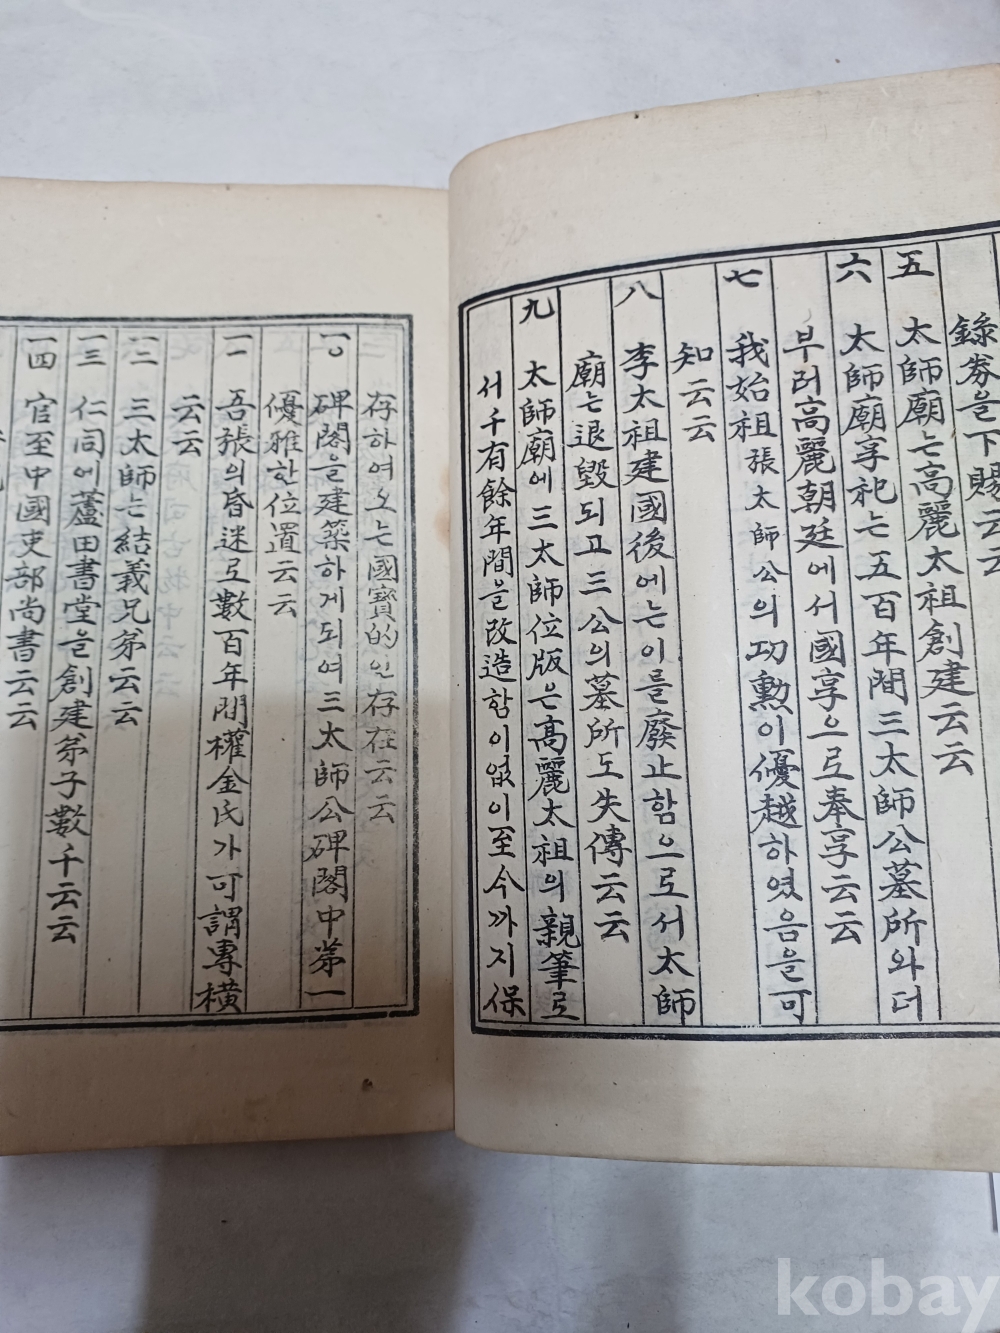 錄券을下賜云云
五 太師廟는高麗太祖創建云云
六 太師廟享祀는五百年間三太師公墓所와더
부러高麗朝廷에서國享으로奉享云云
七 我始祖張太師公의功勳이優越하였음을可
知云云
八 李太祖建國後에는이를廢止함으로서太師
廟는退毀되고三公의墓所도失傳云云
九 太師廟에三太師位版은高麗太祖의親筆로
서千有餘年間을改造함이없이至今까지保
存하여오는國寶的인存在云云
一〇 碑閣을建築하게되여三太師公碑閣中第一
優雅한位置云云
一一 吾張의昏迷로數百年間權金氏가可謂專橫
云云
一二 三太師는結義兄弟云云
一三 仁同에蘆田書堂을創建弟子數千云云
一四 官至中國吏部尚書云云
kobay